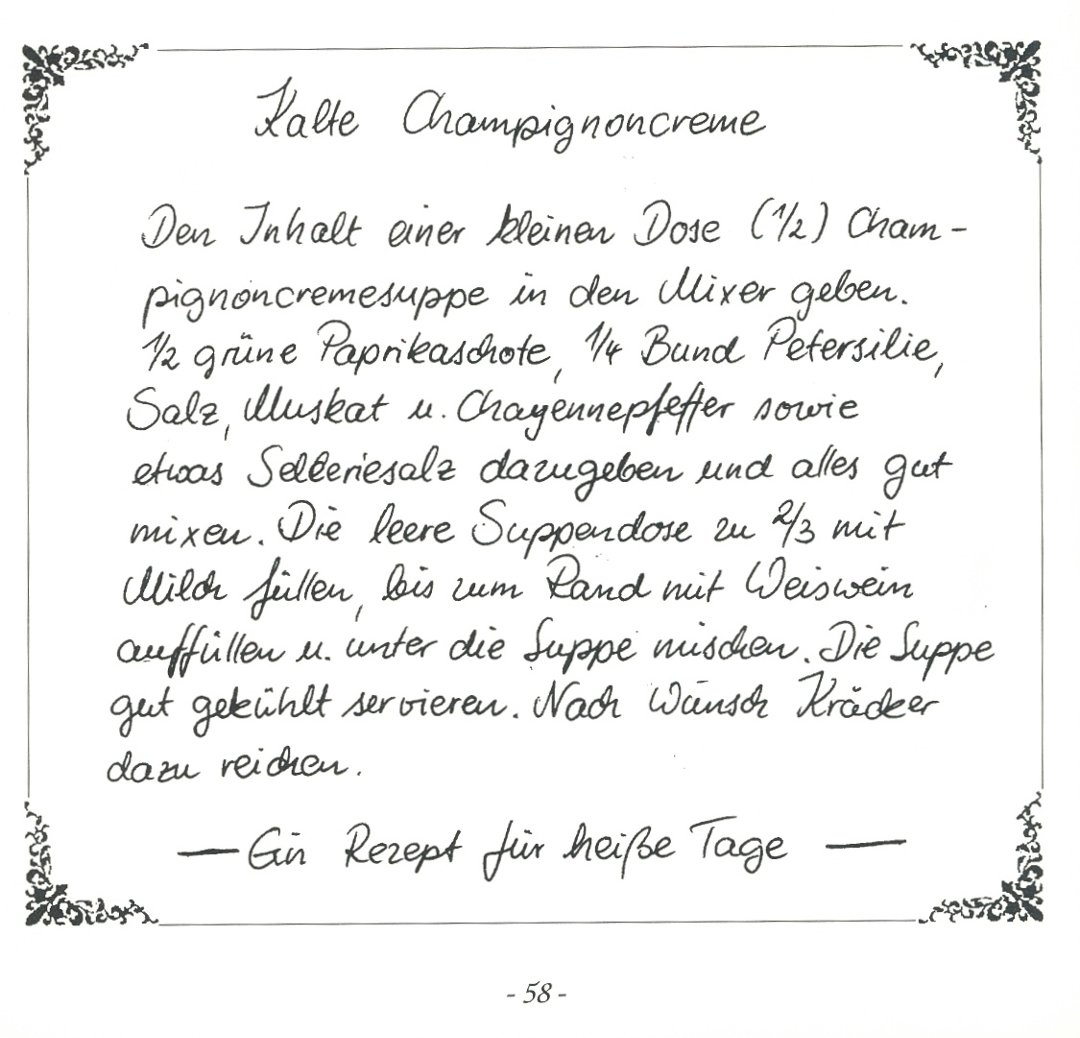 Kalte Champignoncreme
Den Inhalt einer kleinen Dose (1/2) Cham-
pignoncremesuppe in den Mixer geben.
1/2 grüne Paprikaschote, 1/4 Bund Petersilie,
Salz, Muskat u. Chayennepfeffer sowie
etwas Selleriesalz dazugeben und alles gut
mixen. Die leere Suppendose zu 2/3 mit
Milch füllen, bis zum Rand mit Weiswein
auffüllen u. unter die Suppe mischen. Die Suppe
gut gekühlt servieren. Nach Wunsch Kräcker
dazu reichen.
— Ein Rezept für heiße Tage —
- 58 -